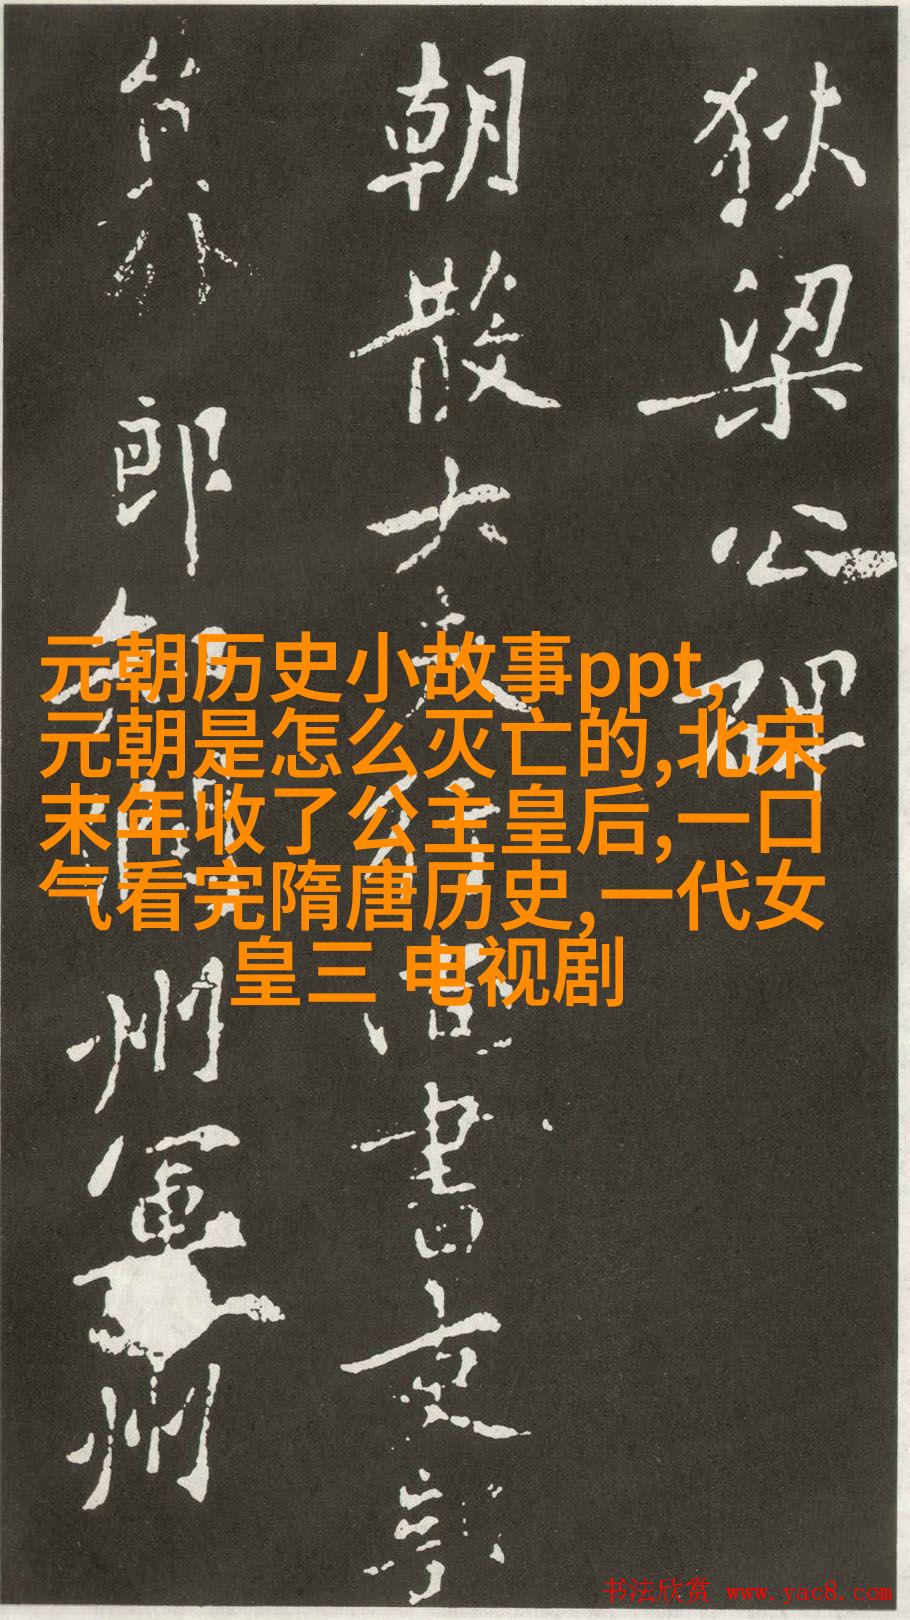 狄梁公碑
朝散大夫行尚書吏部
員外郎知潤州軍州
元朝历史小故事ppt,
元朝是怎么灭亡的,北宋
末年收了公主皇后,一口
气看完隋唐历史,一代女
皇三 电视剧
书法欣赏 www.yac8.com